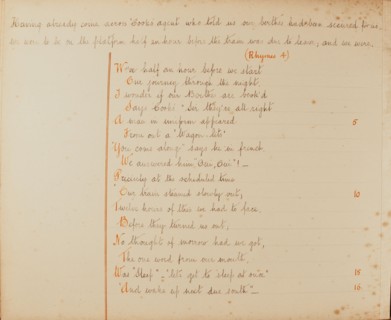 Having already come across Cooks agent who told us our berths had been secured for us,
we were to be on the platform half an hour before the train was due to leave, and we were.
(Rhyme 4)
Twas half an hour before we start
Our journey through the night,
I wonder if our Berths are book'd
Says Cooks "Sir they're all right
A man in uniform appeared 5
From out a "Wagon-lits"
"You come along" says he in french
We answered him, "Oui, Oui"! –
Precisely at the scheduled time
Our train steamed slowly out, 10
Twelve hours of this we had to face,
Before they turned us out,
No thought of sorrow had we got,
The one word from our mouth,
Was "Sleep" – "let's get to sleep at once 15
"And wake up next due south" – 16